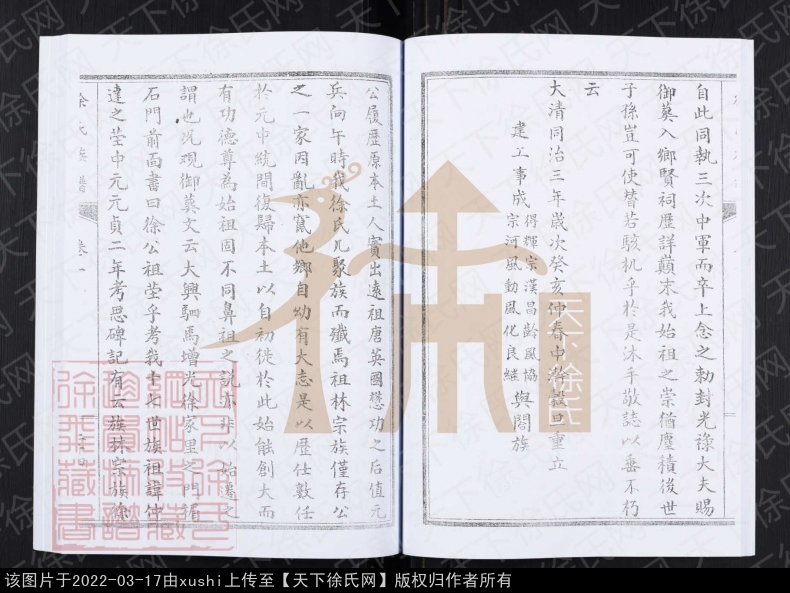 自此同執三次中軍而卒上念之勅封光祿大夫賜
御葬入鄉賢祠歷詳顛末我始祖之崇猶塵積後世
子孫豈可使瞥若駭机乎於是沐手敬誌以垂不朽
云
大清同治三年歲次癸亥仲春中澣穀旦重立
建工事成
得輝宗漢昌齡風協
宗河風動風化良繼
與閤族
公履歷原本土人實出遠祖唐英國懋功之后值元
兵向午時我徐氏凡聚族而殲焉祖林宗族僅存公
之一家因亂亦竄他鄉自幼有大志是以歷仕數任
於元中統間復歸本土以自初徙於此始能創大而
有功德尊為始祖固不同鼻祖之說亦非以始遷之
謂也況現御葬文云大興駟馬增光徐家里之門
石門前面書曰徐公祖塋乎考我十七世族祖諱仲
達之塋中元元貞二年考思碑記有云族林宗族徐
徐氏族譜
卷一
天下徐氏
天下徐氏网
该图片于2022-03-17由xushi上传至【天下徐氏网】版权归作者所有